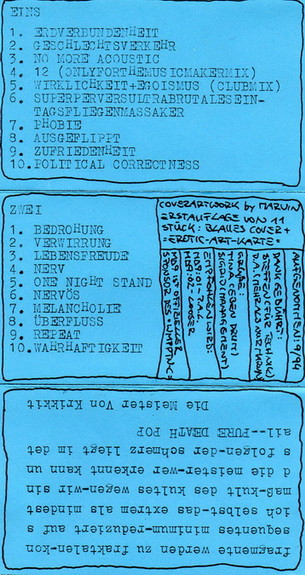 EINS
1. ERDVERBUNDENHEIT
2. GESCHLECHTSVERKEHR
3. NO MORE ACOUSTIC
4. 12 (ONLYFORTHEMUSICMAKERMIX)
5. WIRKLICHKEIT+EGOISMUS (CLUBMIX)
6. SUPERPERVERSULTRABRUTALESEIN-
TAGSFLIEGENMASSAKER
7. PHOBIE
8. AUSGEFLIPPT
9. ZUFRIEDENHEIT
10.POLITICAL CORRECTNESS
ZWEI
1. BEDROHUNG
2. VERWIRRUNG
3. LEBENSFREUDE
4. NERV
5. ONE NIGHT STAND
6. NERVÖS
7. MELANCHOLIE
8. ÜBERFLUSS
9. REPEAT
10. WAHRHAFTIGKEIT
COVERARTWORK by MARVIN
ERSTAUFLAGE VON 11
STÜCK: BLAUES COVER+
=EROTIC-ART-KARTE=
AUFGENOMMEN 9/94
DANK GEBÜHRT:
fragmente werden zu fraktalen-kon
sequentes minimum-reduziert auf s
ich selbst-das extrem als mindest
maß-kult des kultes wegen-wir sin
d die meister-wer erkennt kann un
s folgen-der schmerz liegt im det
ail--PURE DEATH POP
Die Meister Von Krikkit